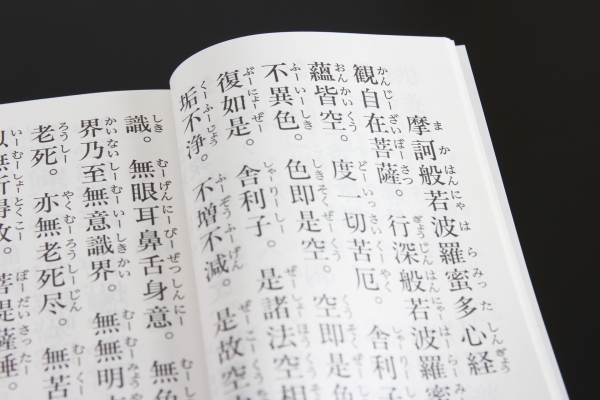 摩訶般若波羅蜜多心経
観自在菩薩。行深般若波羅蜜
蘊皆空。度一切苦厄。舎利子
不異色。色即是空。空即是色
復如是。舎利子。是諸法空相
垢不浄。不増不減。是故空
識。無眼耳鼻舌身意。無色
界乃至無意識界。無無明
老死。亦無老死尽。無苦
以無所得故。菩提薩埵。